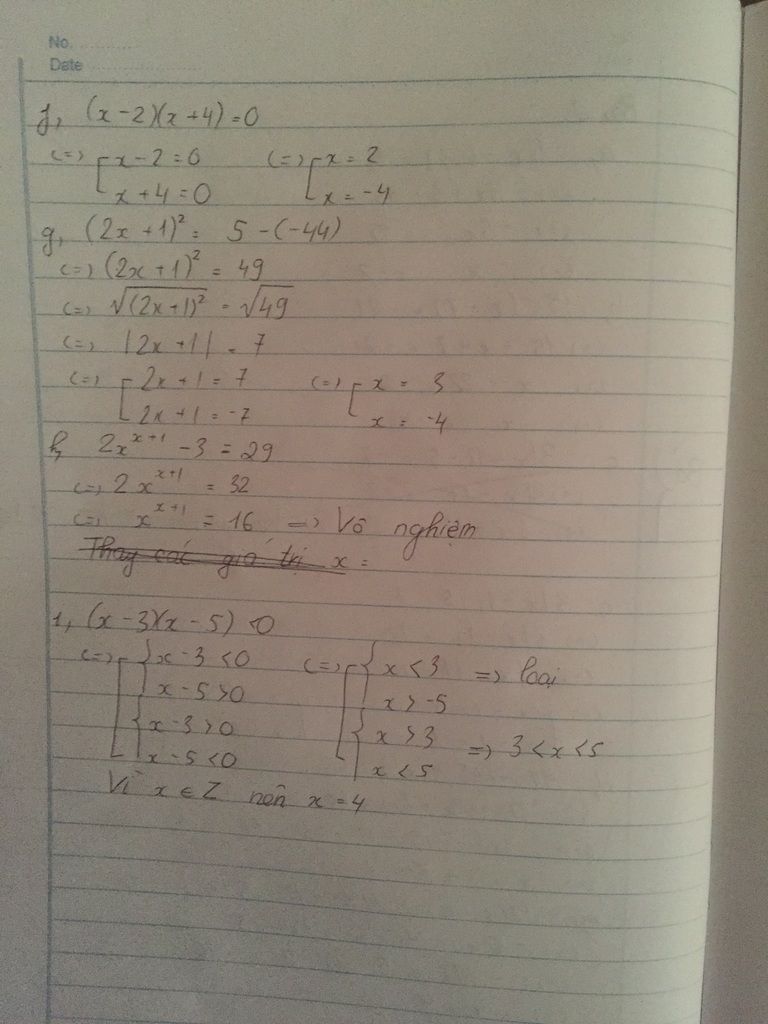 No. ............
Date ........................
f, (x-2)(x+4)=0
<=> [x-2=0 <=> [x=2
x+4=0 x=-4
g, (2x+1)² = 5-(-44)
<=> (2x+1)² = 49
<=> √(2x+1)² = √49
<=> |2x+1| = 7
<=> [2x+1=7 <=> [x = 3
2x+1=-7 x = -4
h, 2x^(x+1) - 3 = 29
<=> 2x^(x+1) = 32
<=> x^(x+1) = 16 => Vô nghiệm
Thay các giá trị x =
1, (x-3)(x-5) <0
<=> [{x-3<0 <=> [{x<3 => loại
x-5>0 x>-5
{x-3>0 {x>3 => 3<x<5
x-5<0 x<5
Vì x ∈ Z nên x=4